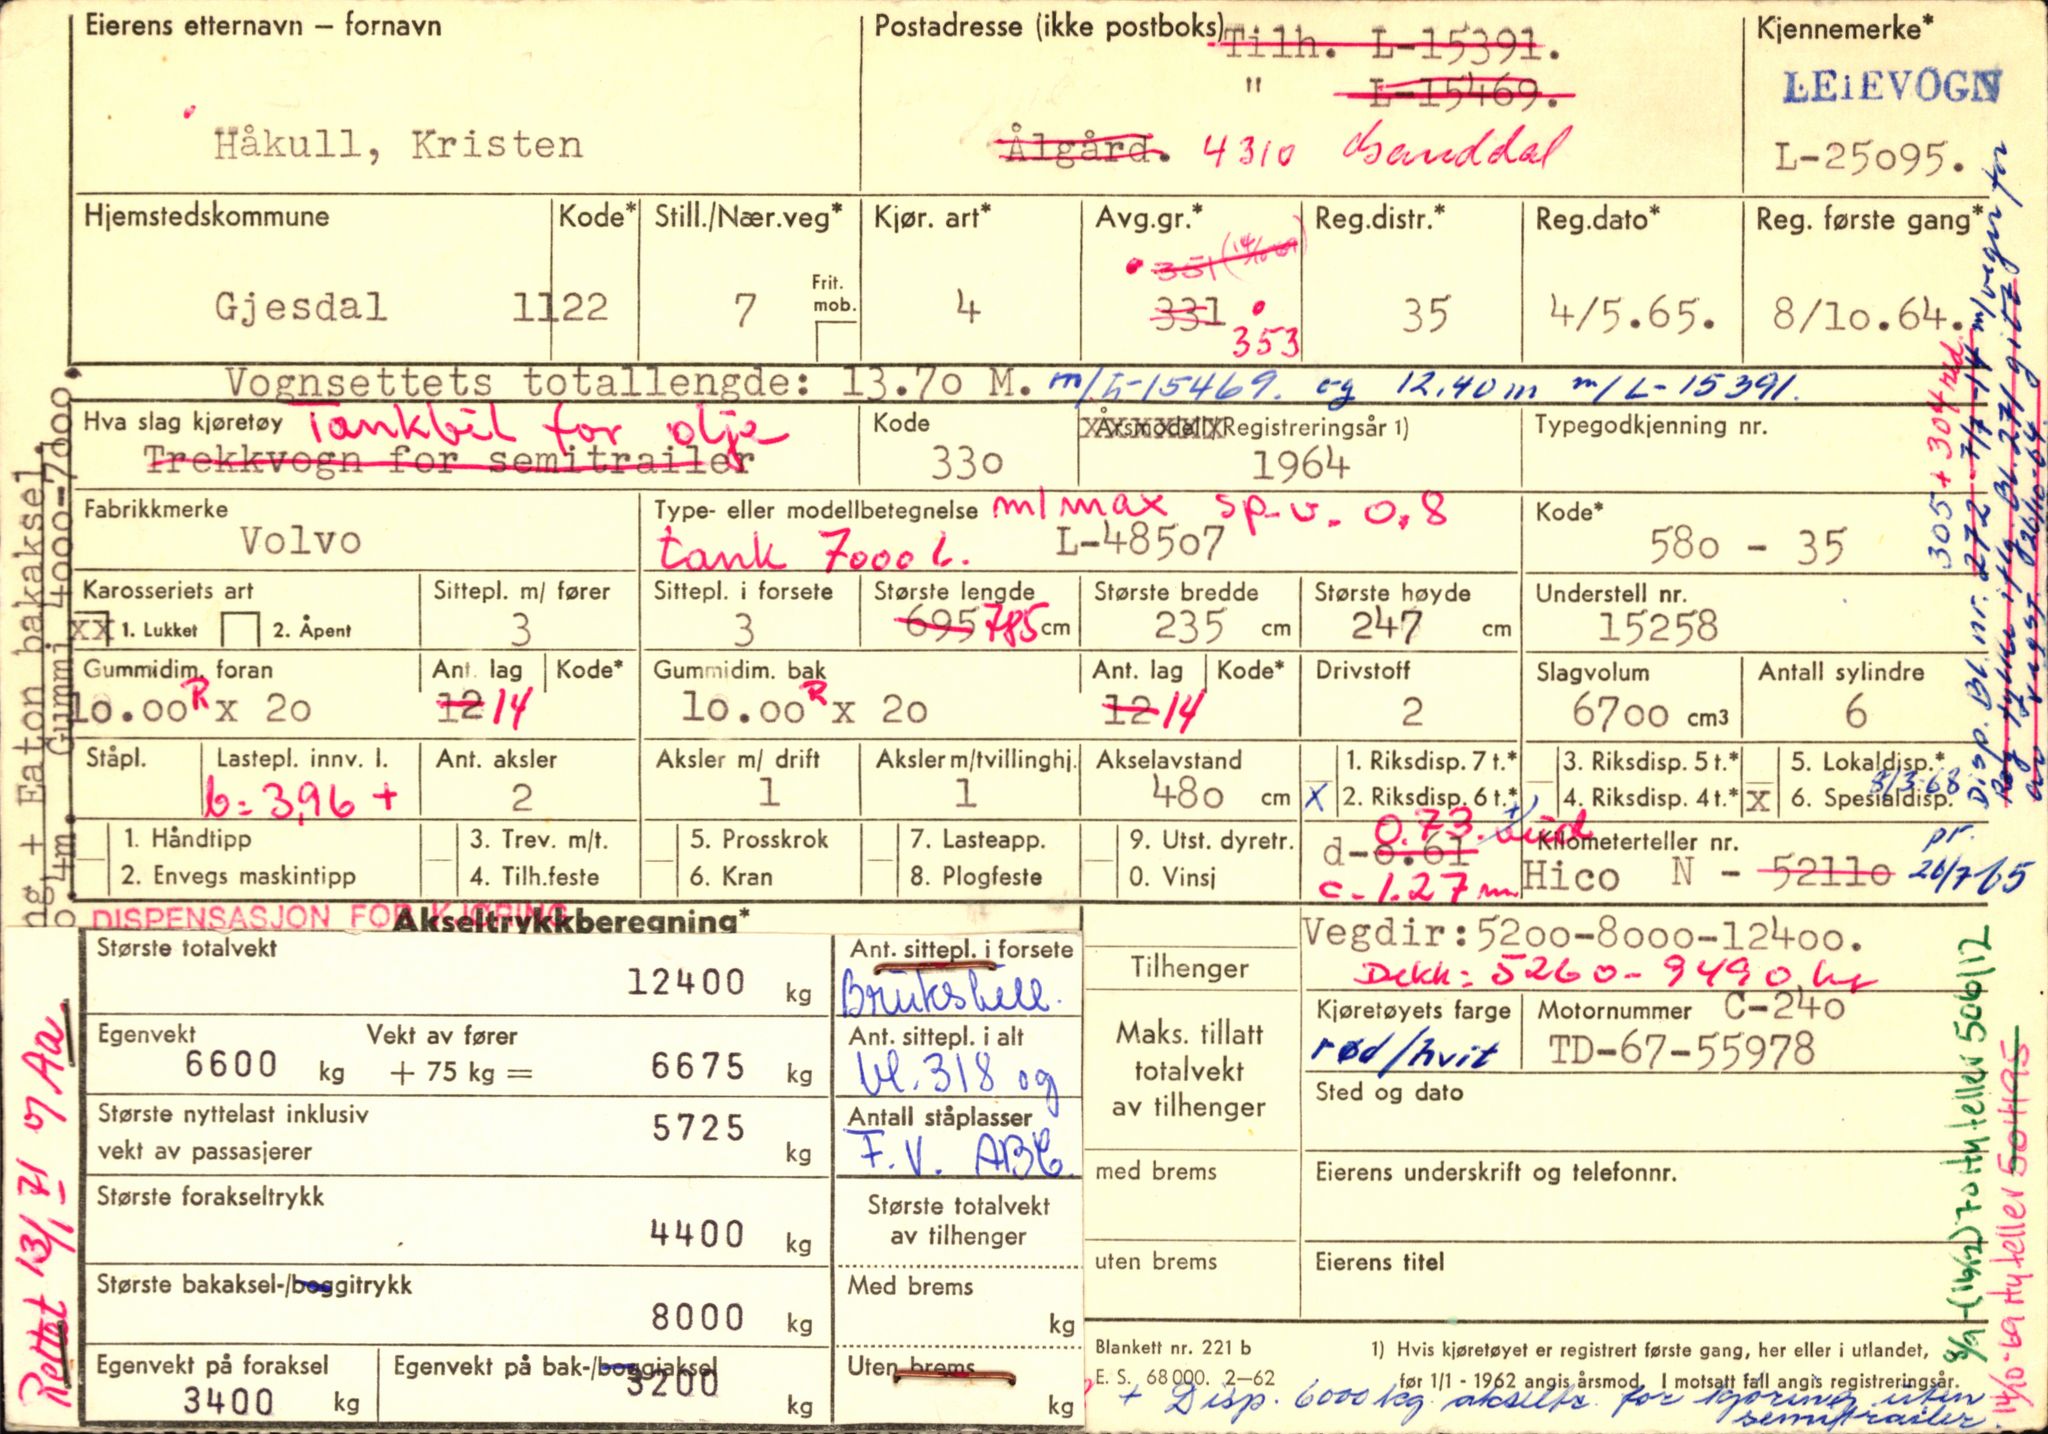 Eierens etternavn – fornavn
Håkull, Kristen
Postadresse (ikke postboks)
Tilh. L-15391.
" L-15469.
Ålgård. 4310
Kjennemerke*
LEiEVOGN
L-25095.
Hjemstedskommune Kode* Still./Nær.veg* Kjør. art* Avg.gr.* Reg.distr.* Reg.dato* Reg. første gang*
351
Frit. mob.
Gjesdal 1122 7 4 331 35 4/5.65. 8/10.64.
353
Vognsettets totallengde: 13.70 M. m/L-15469. og 12,40 m m/L-15391.
Hva slag kjøretøy Tankbil for olje
Trekkvogn for semitrailer
Kode
330
Årsmodell/Registreringsår 1)
1964
Typegodkjenning nr.
Fabrikkmerke
Volvo
Type- eller modellbetegnelse m/max sp.v. 0,8
tank 7000 l. L-48507
Kode*
580 - 35
Karosseriets art Sittepl. m/ fører Sittepl. i forsete Største lengde Største bredde Største høyde Understell nr.
XX 1. Lukket 2. Åpent 3 3 695 785 cm 235 cm 247 cm 15258
Gummidim. foran Ant. lag Kode* Gummidim. bak Ant. lag Kode* Drivstoff Slagvolum Antall sylindre
10.00 R x 20 12 14 10.00 R x 20 12 14 2 6700 cm3 6
Ståpl. Lastepl. innv. l. Ant. aksler Aksler m/ drift Aksler m/tvillinghj. Akselavstand
b= 3,96 + 2 1 1 480 cm
1. Riksdisp. 7 t.* 3. Riksdisp. 5 t.* 5. Lokaldisp.*
X 2. Riksdisp. 6 t.* 4. Riksdisp. 4 t.* X 6. Spesialdisp.
8/3-68
1. Håndtipp 3. Trev. m/t. 5. Prosskrok 7. Lasteapp. 9. Utst. dyretr.
2. Envegs maskintipp 4. Tilh.feste 6. Kran 8. Plogfeste 0. Vinsj
0.73
d-0.61
c-1.27 m
Kilometerteller nr.
Hico N - 52110
pr. 26/7 65
DISPENSASJON FOR KJØRING
Akseltrykkberegning*
Største totalvekt
12400 kg
Egenvekt Vekt av fører
6600 kg + 75 kg = 6675 kg
Største nyttelast inklusiv
vekt av passasjerer
5725 kg
Største forakseltrykk
4400 kg
Største bakaksel-/boggitrykk
8000 kg
Egenvekt på foraksel Egenvekt på bak-/boggiaksel
3400 kg 3200 kg
Ant. sittepl. i forsete
Brukstill.
Ant. sittepl. i alt
bl. 318 og
Antall ståplasser
F. V.
Største totalvekt
av tilhenger
Med brems
kg
Uten brems
kg
Tilhenger
Maks. tillatt
totalvekt
av tilhenger
med brems
uten brems
Vegdir:5200-8000-12400.
Dekk: 5260 - 9490 kg
Kjøretøyets farge
rød/hvit
Motornummer C-240
TD-67-55978
Sted og dato
Eierens underskrift og telefonnr.
Eierens titel
Blankett nr. 221 b
E. S. 68 000. 2—62
1) Hvis kjøretøyet er registrert første gang, her eller i utlandet,
før 1/1 - 1962 angis årsmod. I motsatt fall angis registreringsår.
+ Disp. 6000 kg. akseltr. for kjøring uten
semitrailer.
ng + Eaton bakaksel.
0,4m. Gummi 4000-7000.
Rettet 13/1 71 Aa.
305 + 304 rød.
Disp. Bl.nr. 272 - 7/7-14 m/vegn for